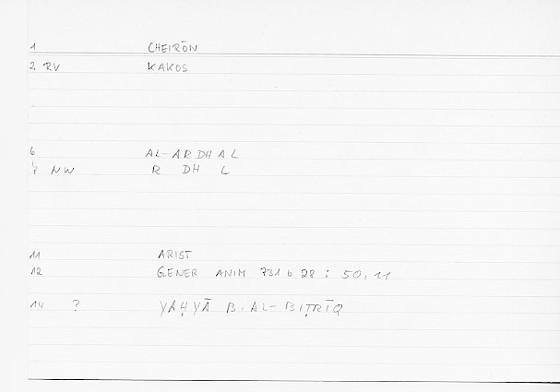 1 CHEIRŌN
2 RV KAKOS
6 AL-ARDHAL
7 NW R DH L
11 ARIST
12 GENER ANIM 731 b 28 : 50,11
14 ? YAḤYĀ B. AL-BIṬRĪQ